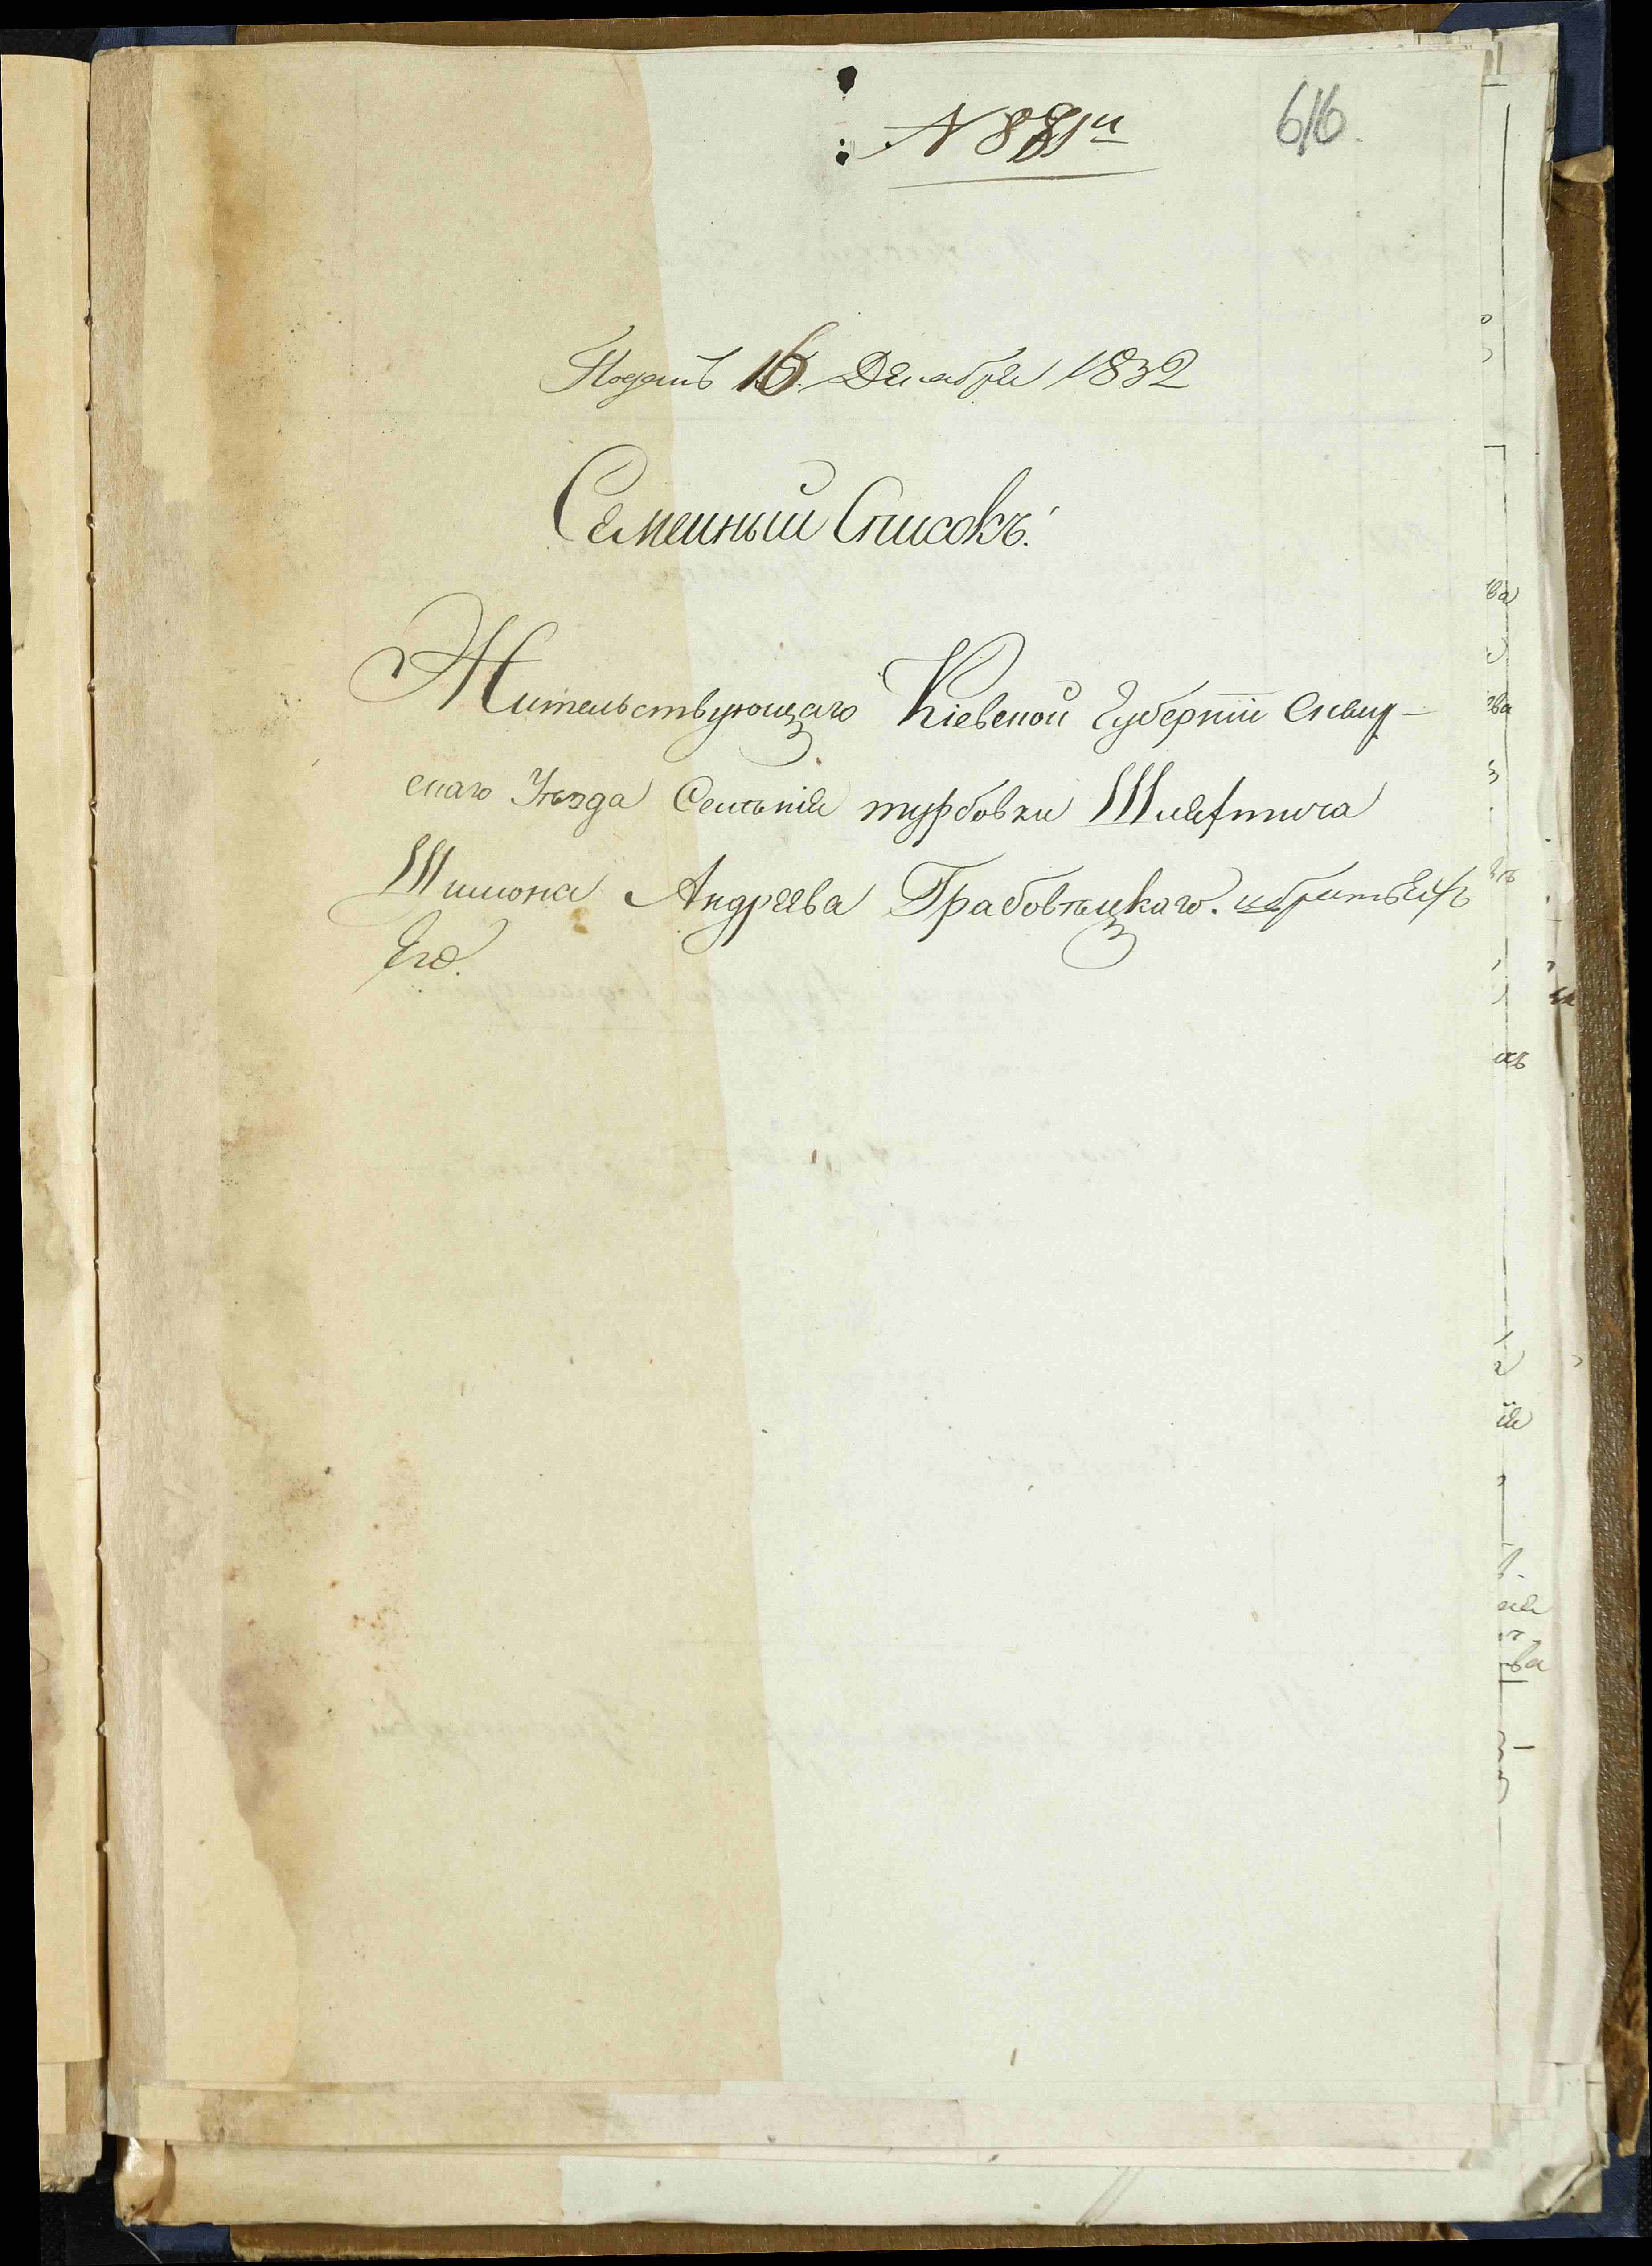 616.
Поданъ 16. Декабря 1832
Семейный Списокъ.
Жительствующаго Кіевской Губерніи Сквир-
скаго Уѣзда Селѣнія турбовки Шляхтича
Шимона Андреева Грабовѣцкаго. и братьевъ
Его.